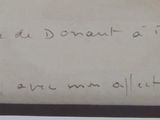 de Donaut à
avec mon affect